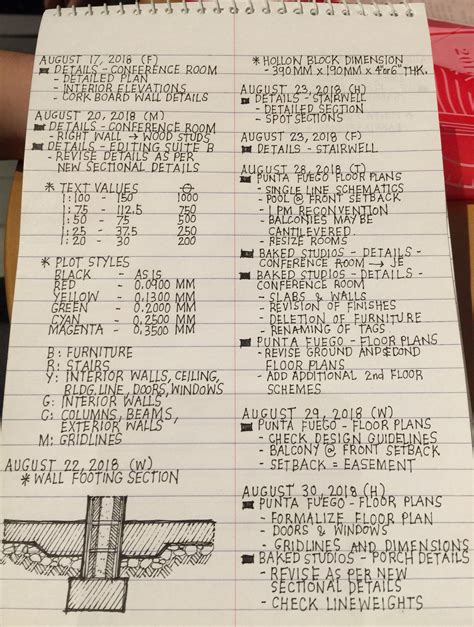 AUGUST 17, 2018 (F)
DETAILS - CONFERENCE ROOM
- DETAILED PLAN
- INTERIOR ELEVATIONS
- CORK BOARD WALL DETAILS
AUGUST 20, 2018 (M)
DETAILS - CONFERENCE ROOM
- RIGHT WALL → WOOD STUDS
DETAILS - EDITING SUITE B
- REVISE DETAILS AS PER
NEW SECTIONAL DETAILS
* TEXT VALUES
1:100 - 150 1000
1:75 - 112.5 750
1:50 - 75 500
1:25 - 37.5 250
1:20 - 30 200
* PLOT STYLES
BLACK - AS IS
RED - 0.0900 MM
YELLOW - 0.1300 MM
GREEN - 0.2000 MM
CYAN - 0.2500 MM
MAGENTA - 0.3500 MM
B: FURNITURE
R: STAIRS
Y: INTERIOR WALLS, CEILING,
BLDG. LINE, DOORS, WINDOWS
G: INTERIOR WALLS
C: COLUMNS, BEAMS,
EXTERIOR WALLS
M: GRIDLINES
AUGUST 22, 2018 (W)
* WALL FOOTING SECTION
* HOLLON BLOCK DIMENSION
- 390MM x 190MM x 4" or 6" THK.
AUGUST 23, 2018 (H)
DETAILS - STAIRWELL
- DETAILED SECTION
- SPOT SECTIONS
AUGUST 23, 2018 (F)
DETAILS - STAIRWELL
AUGUST 28, 2018 (T)
PUNTA FUEGO FLOOR PLANS
- SINGLE LINE SCHEMATICS
- POOL @ FRONT SETBACK
- 1 PM RECONVENTION
- BALCONIES MAY BE
CANTILEVERED
- RESIZE ROOMS
BAKED STUDIOS - DETAILS -
CONFERENCE ROOM → JE
BAKED STUDIOS - DETAILS -
CONFERENCE ROOM
- SLABS & WALLS
- REVISION OF FINISHES
- DELETION OF FURNITURE
- RENAMING OF TAGS
PUNTA FUEGO - FLOOR PLANS
- REVISE GROUND AND SECOND
FLOOR PLANS
- ADD ADDITIONAL 2nd FLOOR
SCHEMES
AUGUST 29, 2018 (W)
PUNTA FUEGO - FLOOR PLANS
- CHECK DESIGN GUIDELINES
- BALCONY @ FRONT SETBACK
- SETBACK = EASEMENT
AUGUST 30, 2018 (H)
PUNTA FUEGO - FLOOR PLANS
- FORMALIZE FLOOR PLAN
- DOORS & WINDOWS
- GRIDLINES AND DIMENSIONS
BAKED STUDIOS - PORCH DETAILS
- REVISE AS PER NEW
SECTIONAL DETAILS
- CHECK LINEWEIGHTS